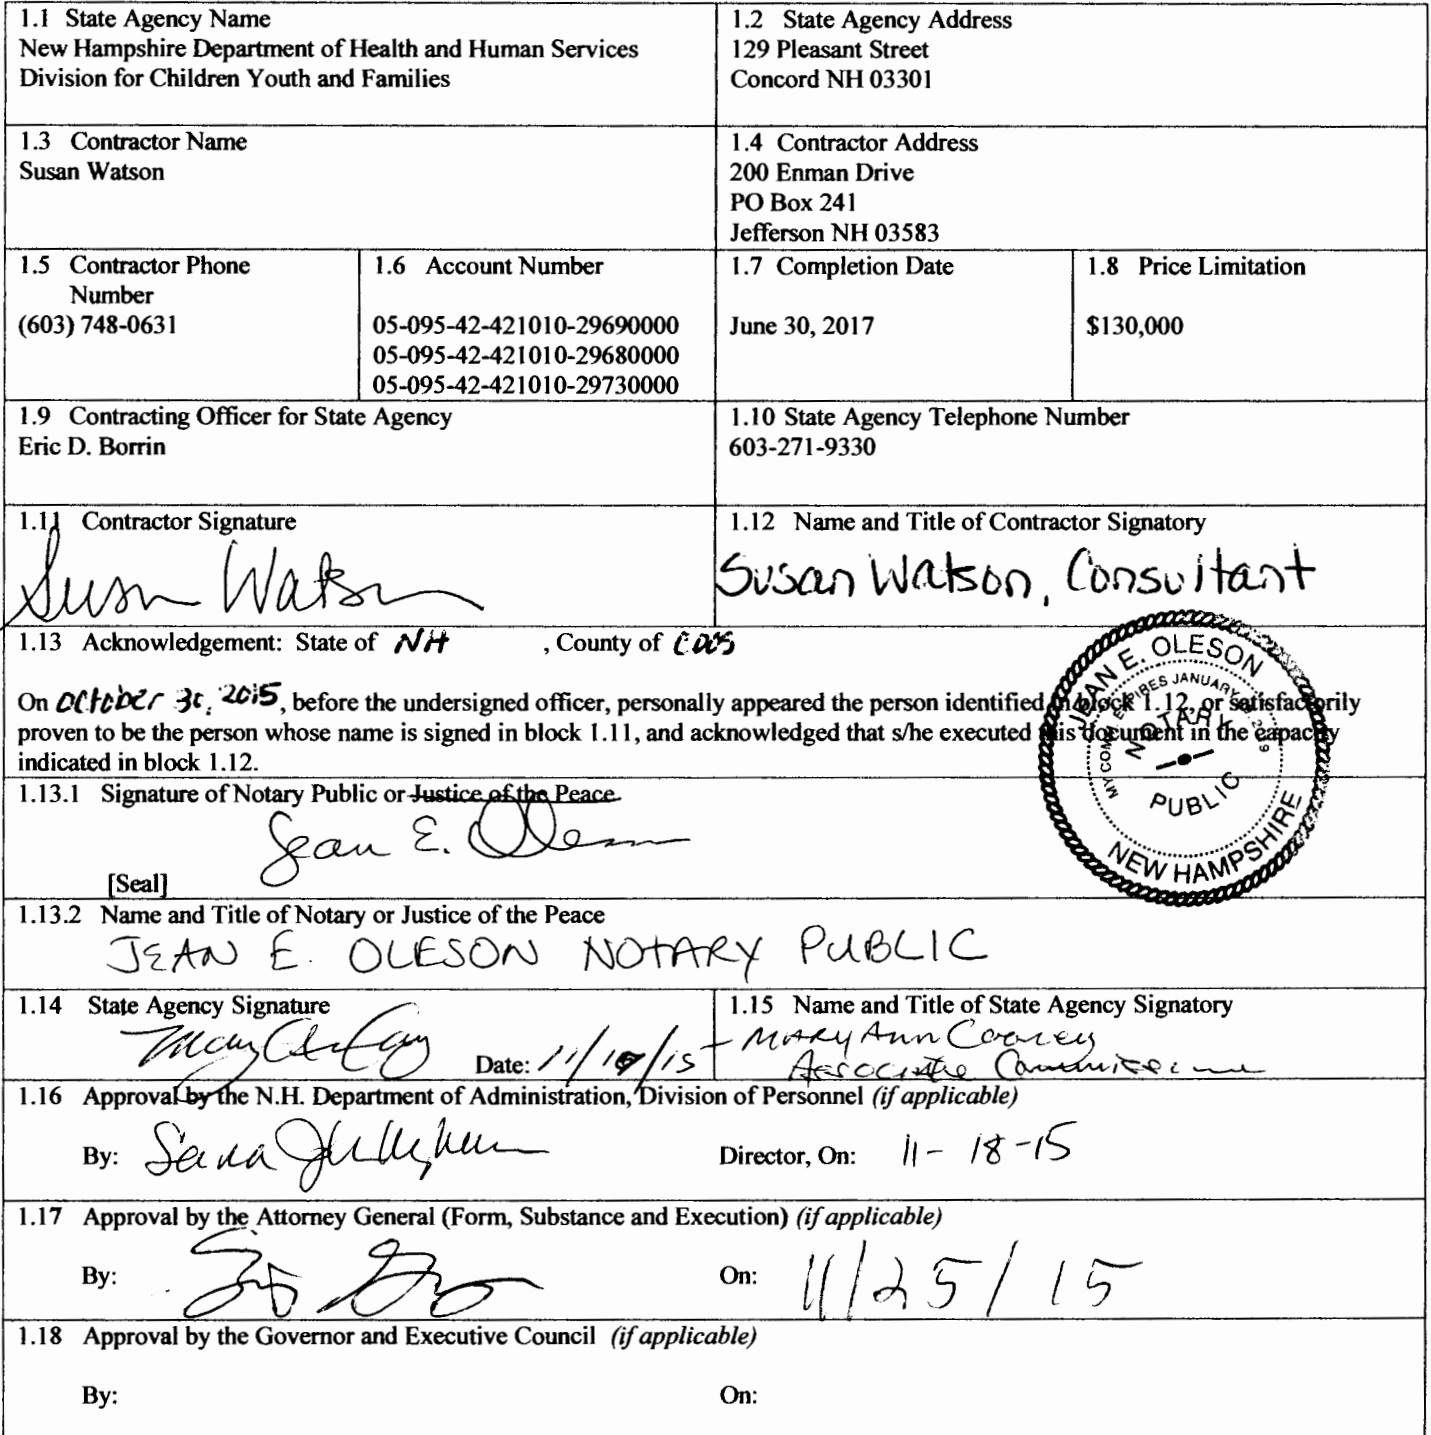 1.1 State Agency Name
New Hampshire Department of Health and Human Services
Division for Children Youth and Families
1.2 State Agency Address
129 Pleasant Street
Concord NH 03301
1.3 Contractor Name
Susan Watson
1.4 Contractor Address
200 Enman Drive
PO Box 241
Jefferson NH 03583
1.5 Contractor Phone
Number
(603) 748-0631
1.6 Account Number
05-095-42-421010-29690000
05-095-42-421010-29680000
05-095-42-421010-29730000
1.7 Completion Date
June 30, 2017
1.8 Price Limitation
$130,000
1.9 Contracting Officer for State Agency
Eric D. Borrin
1.10 State Agency Telephone Number
603-271-9330
1.11 Contractor Signature
Susan Watson
1.12 Name and Title of Contractor Signatory
Susan Watson, Consultant
1.13 Acknowledgement: State of NH , County of COOS
On October 30, 2015, before the undersigned officer, personally appeared the person identified in block 1.12, or satisfactorily
proven to be the person whose name is signed in block 1.11, and acknowledged that s/he executed this document in the capacity
indicated in block 1.12.
JEAN E. OLESON
MY COMM. EXPIRES JANUARY
NOTARY
PUBLIC
NEW HAMPSHIRE
1.13.1 Signature of Notary Public or Justice of the Peace
Jean E. Oleson
[Seal]
1.13.2 Name and Title of Notary or Justice of the Peace
JEAN E. OLESON NOTARY PUBLIC
1.14 State Agency Signature
Date: 11/10/15
1.15 Name and Title of State Agency Signatory
Mary Ann Cooney
Associate Commissioner
1.16 Approval by the N.H. Department of Administration, Division of Personnel (if applicable)
By: Director, On: 11-18-15
1.17 Approval by the Attorney General (Form, Substance and Execution) (if applicable)
By: On: 11/25/15
1.18 Approval by the Governor and Executive Council (if applicable)
By: On: